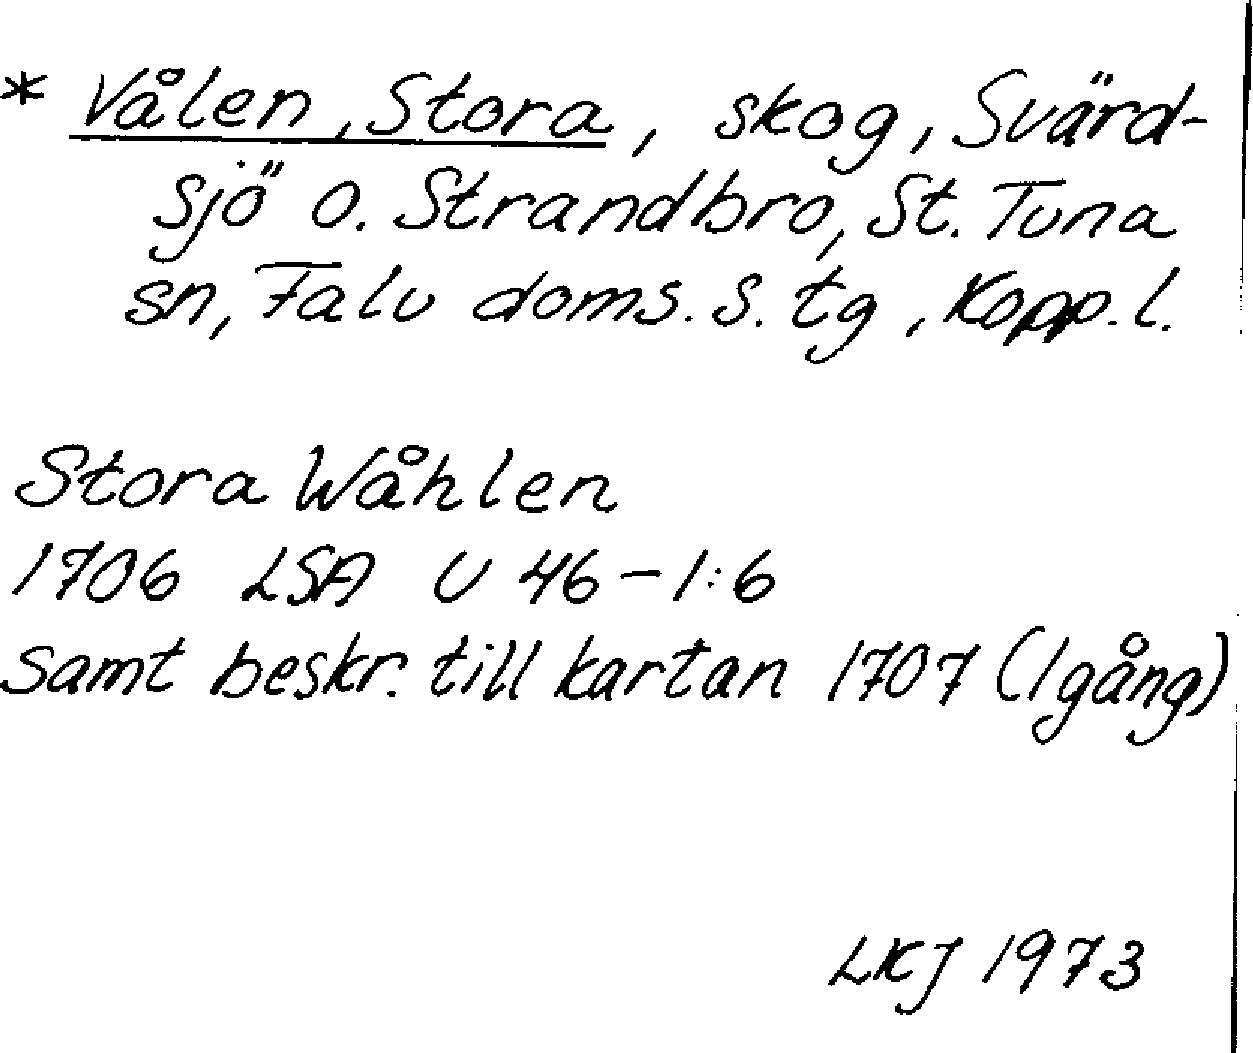 * Vålen, Stora, skog, Svärd-
sjö o. Strandbro, St. Tuna
sn, Falu doms. s. tg, Kopp. l.
Stora Wåhlen
1706 LSA U 46-1:6
samt beskr. till kartan 1707 (1gång)
LKJ 1973